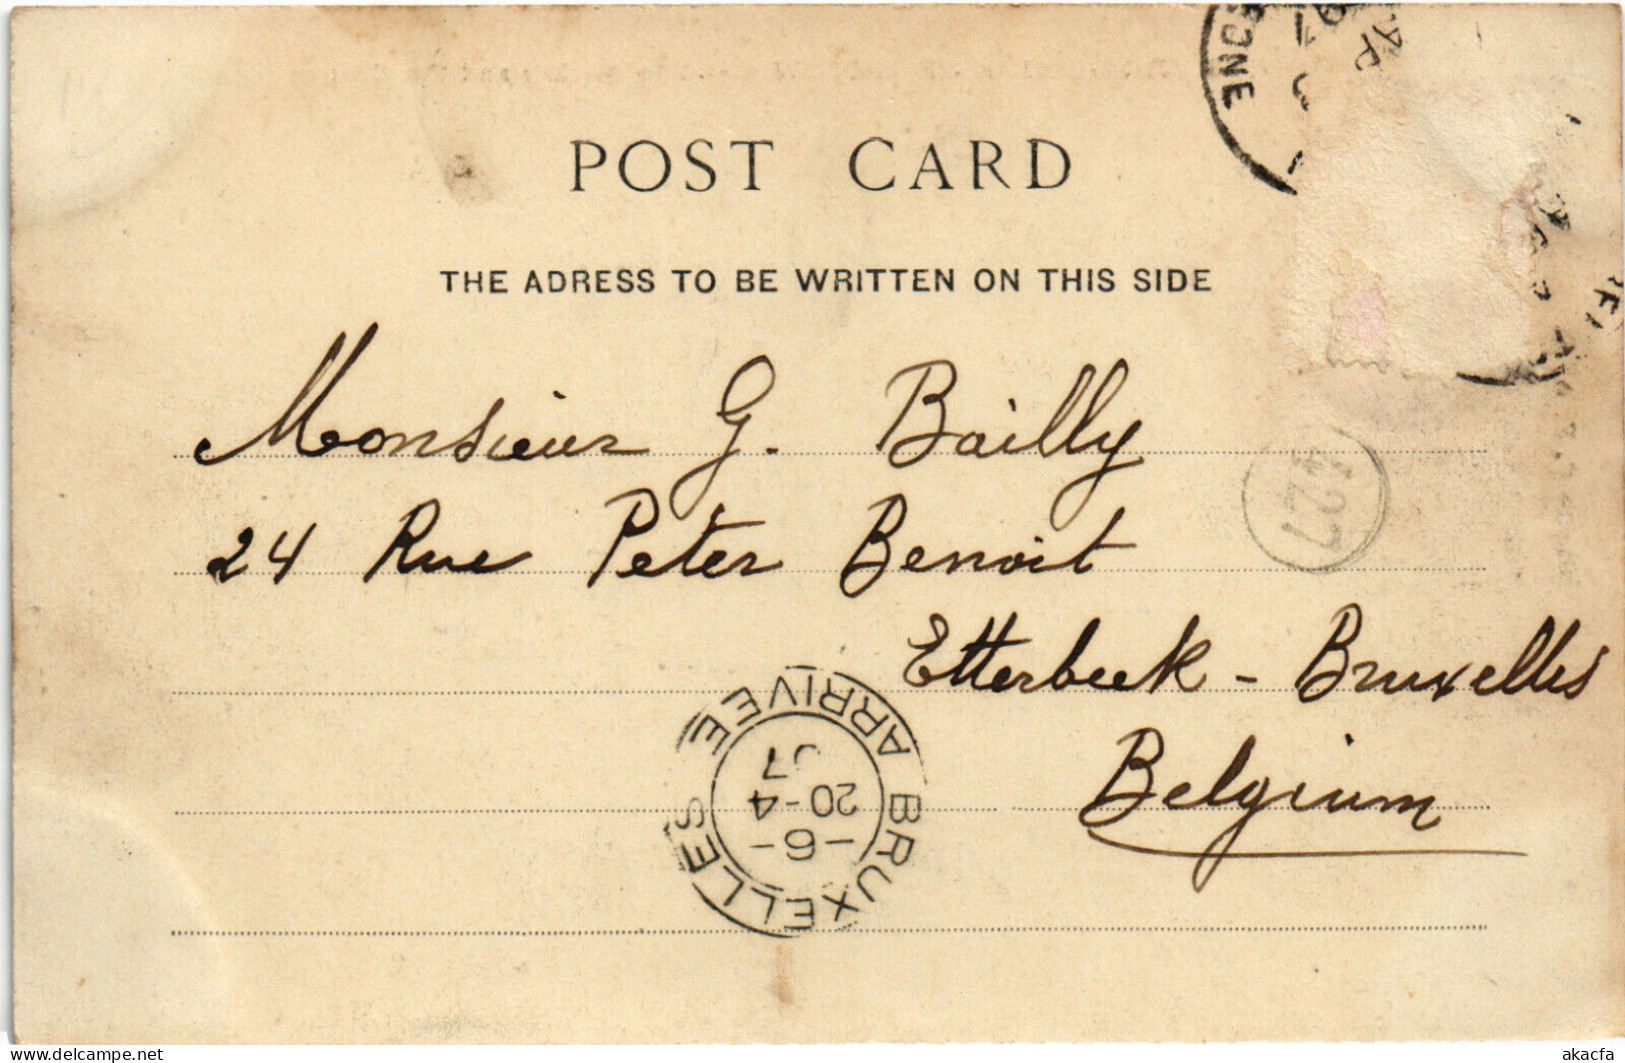 POST CARD
THE ADRESS TO BE WRITTEN ON THIS SIDE
Monsieur G. Bailly
24 Rue Peter Benoit
Etterbeek - Bruxelles
Belgium
BRUXELLES ARRIVEE
-6-
20-4
07
akacfa